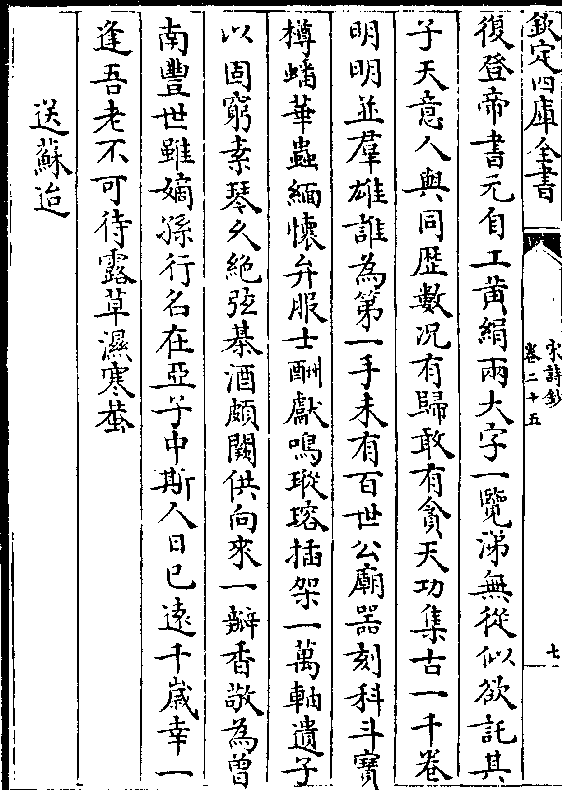 欽定四庫全書
宋詩鈔
卷二十五
七
復登帝書元自工黄絹兩大字一覽涕無從似欲託其
子天意人與同歴數况有歸敢有貪天功集古一千卷
明明並羣雄誰為第一手未有百世公廟器刻科斗寳
樽蟠華蟲緬懷弁服士酬獻鳴瑽瑢插架一萬軸遺子
以固窮素琴久絶弦棊酒頗闕供向來一瓣香敬為曾
南豐世雖嫡孫行名在亞子中斯人日已逺千嵗幸一
逢吾老不可待露草濕寒蛩
送蘇迨